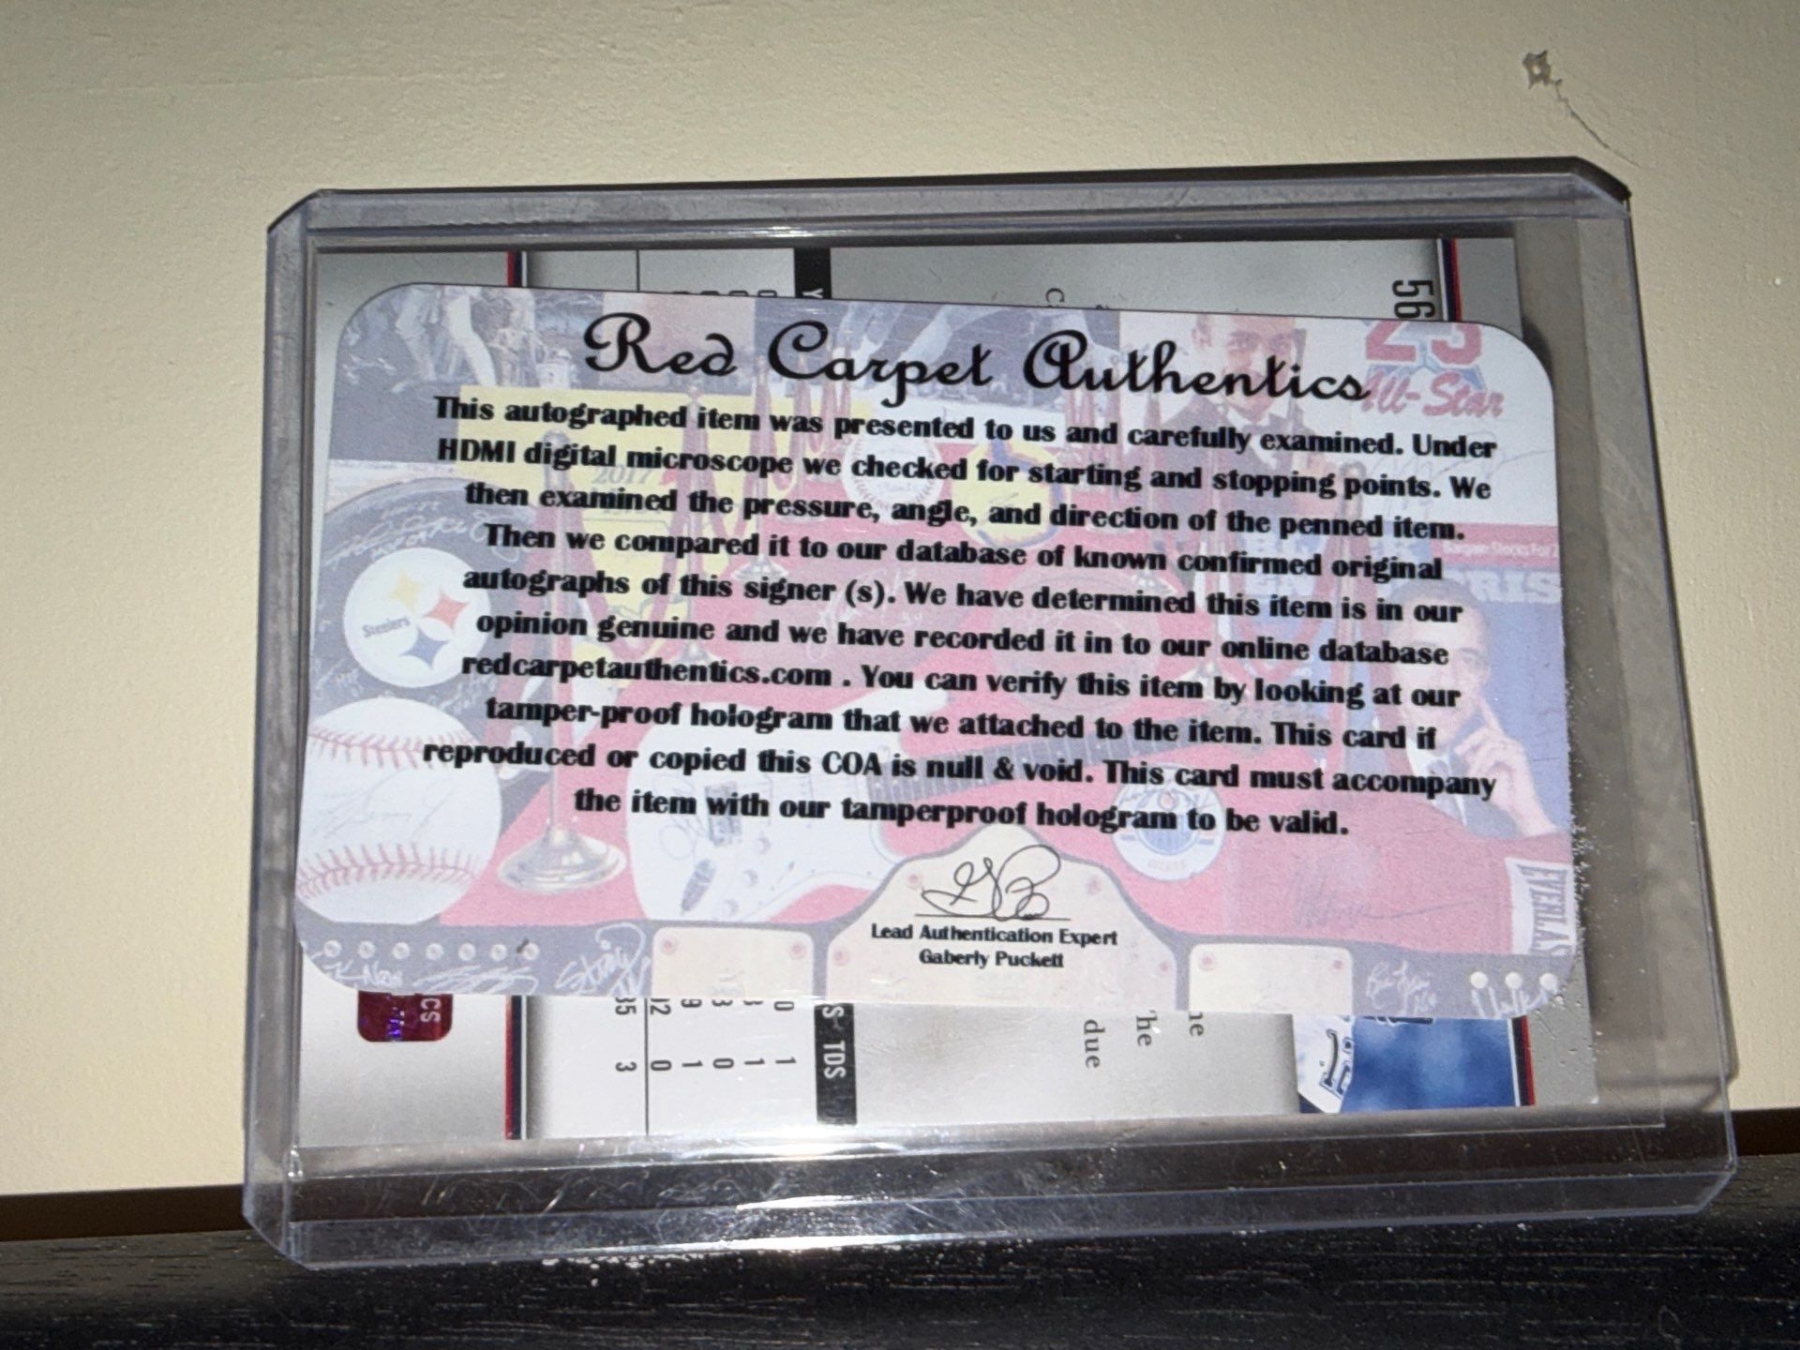 56
Red Carpet Authentics
This autographed item was presented to us and carefully examined. Under
HDMI digital microscope we checked for starting and stopping points. We
then examined the pressure, angle, and direction of the penned item.
Then we compared it to our database of known confirmed original
autographs of this signer (s). We have determined this item is in our
opinion genuine and we have recorded it in to our online database
redcarpetauthentics.com . You can verify this item by looking at our
tamper-proof hologram that we attached to the item. This card if
reproduced or copied this COA is null & void. This card must accompany
the item with our tamperproof hologram to be valid.
Lead Authentication Expert
Gaberly Puckett
23
All-Star
2017
Steelers
EVERLAST
CS
35 12 9 3 0
3 0 1 0 1 1
S TDS
due
he
ne